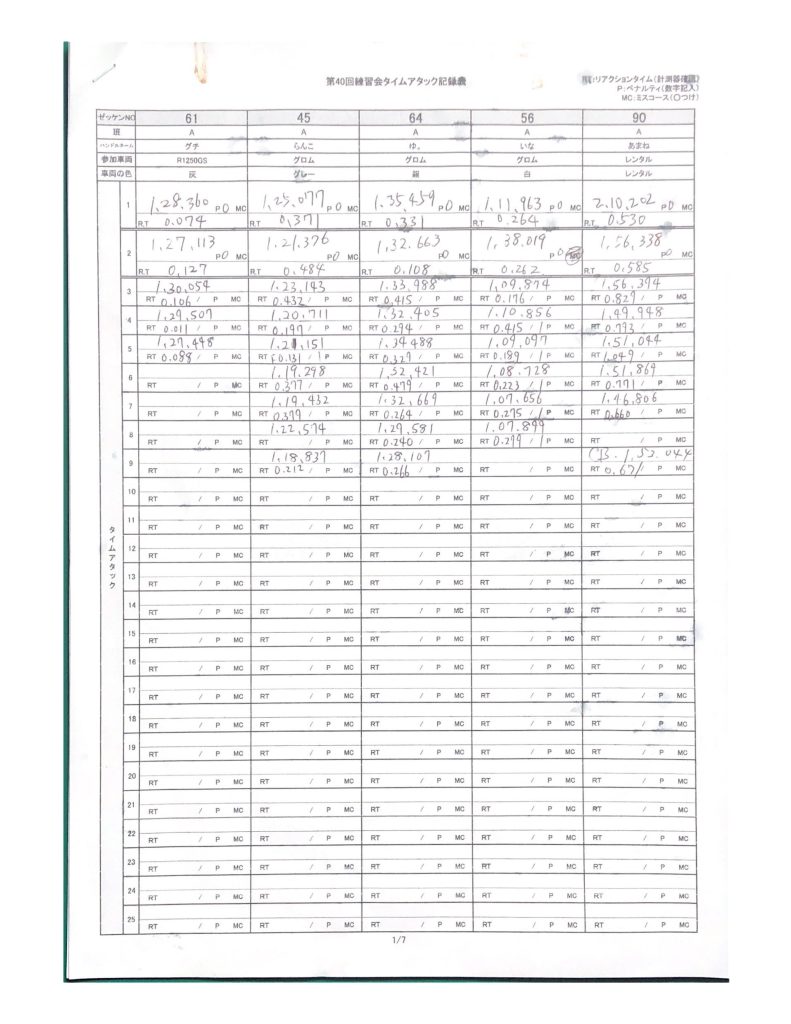 第40回練習会タイムアタック記録表
RT:リアクションタイム(計測器確認)
P:ペナルティ(数字記入)
MC:ミスコース(〇つけ)
ゼッケンNO 61 45 64 56 90
班 A A A A A
ハンドルネーム グチ らんこ ゆ。 いな あまね
参加車両 R1250GS グロム グロム グロム レンタル
車両の色 灰 グレー 銀 白 レンタル
タイムアタック
1 1,28,360 P0 MC 1,25,077 P0 MC 1,35,459 P0 MC 1,11,963 P0 MC 2,10,202 P0 MC
R.T 0.074 R.T 0,371 R.T 0,331 R.T 0.264 R.T 0.530
2 1,27,113 P0 MC 1,21.376 P0 MC 1,32.663 P0 MC 1,38,019 P0 MC 1,56,338 P0 MC
R.T 0,127 R.T 0.484 R.T 0.108 R.T 0.262 R.T 0.585
3 1,30,054 1,23,143 1,33,988 1,09,874 1,56,394
RT 0.106 / P MC RT 0.432 / P MC RT 0.415 / P MC RT 0.176 / P MC RT 0.829 / P MC
4 1,29,507 1,20,711 1,32,405 1,10,856 1,49,948
RT 0.011 / P MC RT 0.197 / P MC RT 0.294 / P MC RT 0.415 / P MC RT 0.793 / P MC
5 1,27,448 1,21,151 1,34,488 1,09,097 1,51,044
RT 0.088 / P MC RT 0.131 / P MC RT 0.329 / P MC RT 0.189 / P MC RT 1.049 / P MC
6 1,19,298 1,32,421 1,08,728 1,51,869
RT / P MC RT 0.377 / P MC RT 0.479 / P MC RT 0.223 / P MC RT 0.771 / P MC
7 1,19,432 1,32,669 1,07,656 1,46,806
RT / P MC RT 0.379 / P MC RT 0.264 / P MC RT 0.275 / P MC RT 0.660 / P MC
8 1,22,574 1,29,581 1,07,899
RT / P MC RT / P MC RT 0.240 / P MC RT 0.299 / P MC RT / P MC
9 1,18,837 1,28,107 CB.1,52.044
RT / P MC RT 0.212 / P MC RT 0.266 / P MC RT / P MC RT 0.67/ P MC
10
RT / P MC RT / P MC RT / P MC RT / P MC RT / P MC
11
RT / P MC RT / P MC RT / P MC RT / P MC RT / P MC
12
RT / P MC RT / P MC RT / P MC RT / P MC RT / P MC
13
RT / P MC RT / P MC RT / P MC RT / P MC RT / P MC
14
RT / P MC RT / P MC RT / P MC RT / P MC RT / P MC
15
RT / P MC RT / P MC RT / P MC RT / P MC RT / P MC
16
RT / P MC RT / P MC RT / P MC RT / P MC RT / P MC
17
RT / P MC RT / P MC RT / P MC RT / P MC RT / P MC
18
RT / P MC RT / P MC RT / P MC RT / P MC RT / P MC
19
RT / P MC RT / P MC RT / P MC RT / P MC RT / P MC
20
RT / P MC RT / P MC RT / P MC RT / P MC RT / P MC
21
RT / P MC RT / P MC RT / P MC RT / P MC RT / P MC
22
RT / P MC RT / P MC RT / P MC RT / P MC RT / P MC
23
RT / P MC RT / P MC RT / P MC RT / P MC RT / P MC
24
RT / P MC RT / P MC RT / P MC RT / P MC RT / P MC
25
RT / P MC RT / P MC RT / P MC RT / P MC RT / P MC
1/7